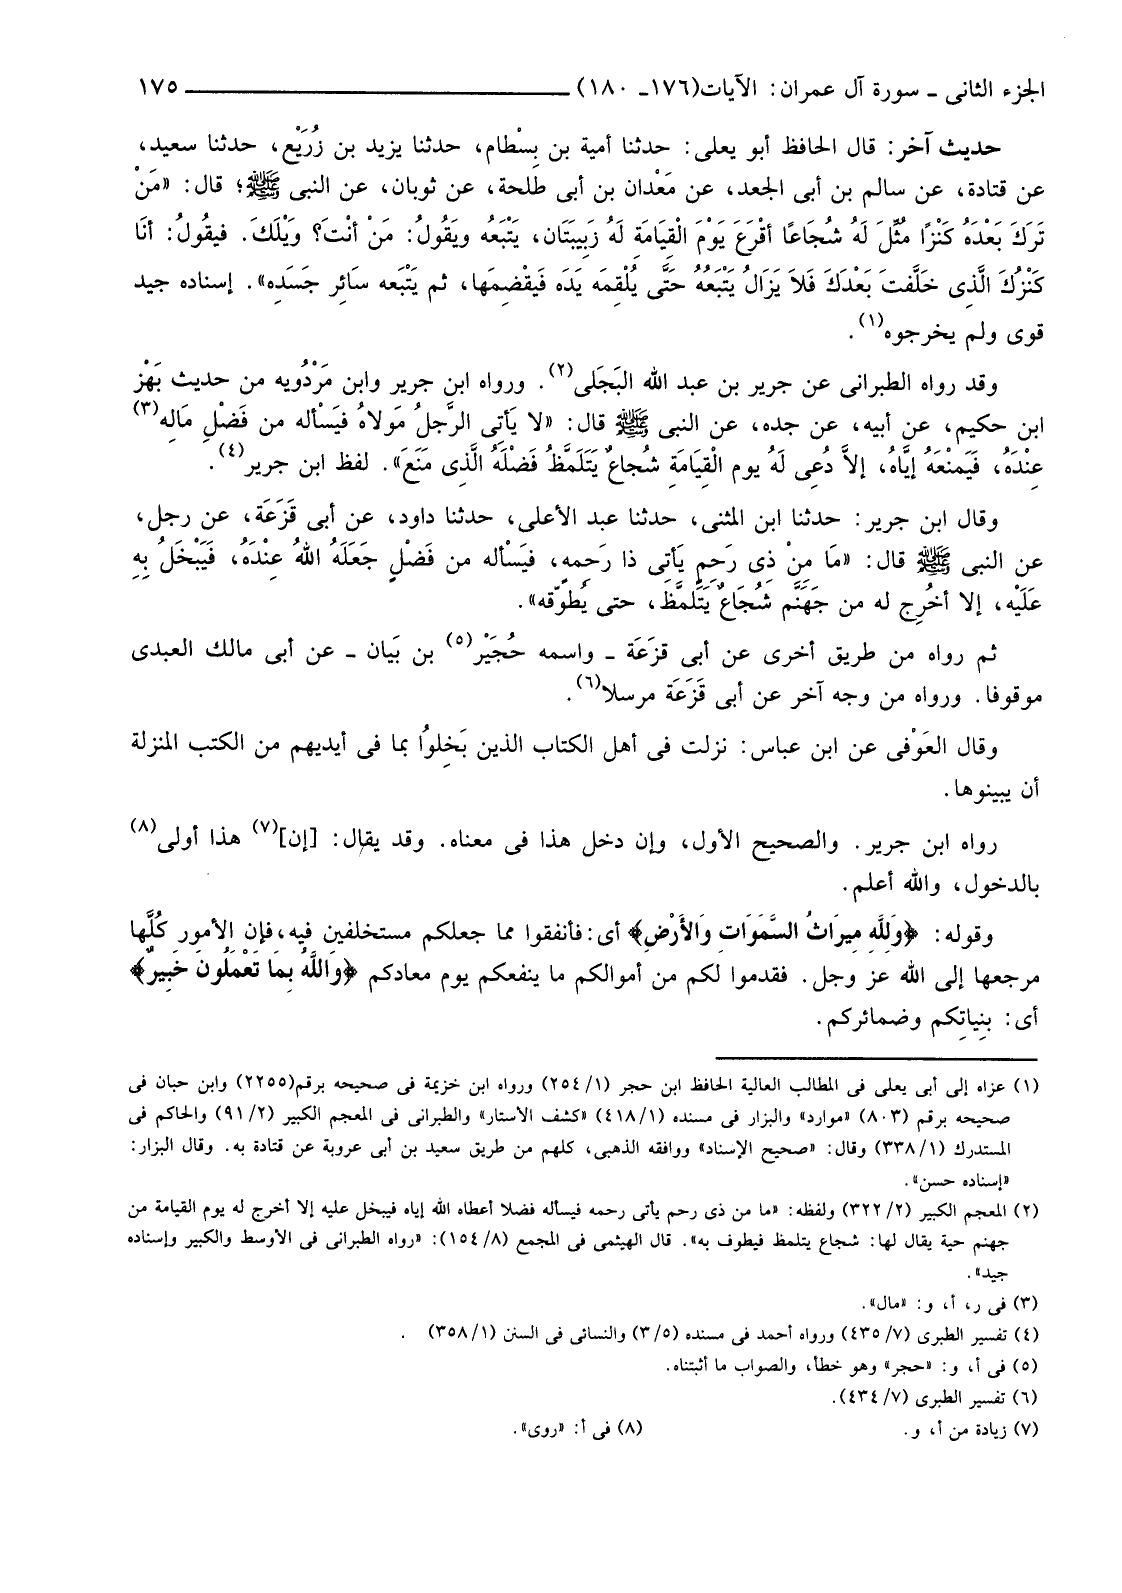 الجزء الثانى ـ سورة آل عمران: الآيات(١٧٦ـ ١٨٠) ــــــــــــــــــــ ١٧٥
حديث آخر: قال الحافظ أبو يعلى: حدثنا أمية بن بِسْطام، حدثنا يزيد بن زُرَيْع، حدثنا سعيد،
عن قتادة، عن سالم بن أبى الجعد، عن مَعْدان بن أبى طلحة، عن ثوبان، عن النبى ﷺ؛ قال: «مَنْ
تَرَكَ بَعْدَهُ كَنْزًا مُثِّلَ لَهُ شُجَاعًا أقْرَعَ يَوْمَ الْقِيَامَةِ لَهُ زَبِيبَتَان، يَتْبَعُه ويَقُولُ: مَنْ أنْتَ؟ وَيْلَكَ. فيقُولُ: أنَا
كَنْزُكَ الَّذِى خَلَّفتَ بَعْدَكَ فَلاَ يَزَالُ يَتْبَعُهُ حَتَّى يُلْقِمَه يَدَه فَيقْضِمَها، ثم يَتْبَعه سَائِر جَسَده». إسناده جيد
قوى ولم يخرجوه(١).
وقد رواه الطبرانى عن جرير بن عبد الله البَجَلى(٢). ورواه ابن جرير وابن مَرْدُويه من حديث بَهْز
ابن حكيم، عن أبيه، عن جده، عن النبى ﷺ قال: «لا يَأتِى الرَّجلُ مَولاهُ فيَسْأله من فَضْلِ مَالِه(٣)
عِنْدَهُ، فَيَمنْعَهُ إيَّاهُ، إلاَّ دُعِى لَهُ يوم الْقِيَامَةِ شُجاعٌ يَتَلَمَّظُ فَضْلَهُ الَّذِى مَنَعَ». لفظ ابن جرير(٤).
وقال ابن جرير: حدثنا ابن المثنى، حدثنا عبد الأعلى، حدثنا داود، عن أبى قَزَعَة، عن رجل،
عن النبى ﷺ قال: «مَا مِنْ ذِى رَحِمٍ يَأتِى ذا رَحِمِهِ، فيَسْأله من فَضْلٍ جَعَلَهُ اللهُ عِنْدَهُ، فَيَبْخَلُ بِهِ
عَلَيْه، إلا أخُرِج له من جَهَنَّم شُجَاعٌ يَتَلَمَّظ، حتى يُطوّقه».
ثم رواه من طريق أخرى عن أبى قزَعَة ـ واسمه حُجَيْر(٥) بن بَيان ـ عن أبى مالك العبدى
موقوفا. ورواه من وجه آخر عن أبى قَزَعَة مرسلا(٦).
وقال العَوْفى عن ابن عباس: نزلت فى أهل الكتاب الذين بَخِلوُا بما فى أيديهم من الكتب المنزلة
أن يبينوها.
رواه ابن جرير. والصحيح الأول، وإن دخل هذا فى معناه. وقد يقال: [إن](٧) هذا أولى(٨)
بالدخول، والله أعلم.
وقوله: ﴿وَللَّهِ مِيرَاثُ السَّمَوَاتِ وَالأَرْضِ﴾ أى:فأنفقوا مما جعلكم مستخلفين فيه،فإن الأمور كُلَّها
مرجعها إلى الله عز وجل. فقدموا لكم من أموالكم ما ينفعكم يوم معادكم ﴿وَاللَّهُ بِمَا تَعْمَلُونَ خَبِيرٌ﴾
أى: بنِياتِكم وضمائركم.
(١) عزاه إلى أبى يعلى فى المطالب العالية الحافظ ابن حجر (١/ ٢٥٤) ورواه ابن خزيمة فى صحيحه برقم(٢٢٥٥) وابن حبان فى
صحيحه برقم (٨٠٣) «موارد» والبزار فى مسنده (٤١٨/١) «كشف الأستار» والطبرانى فى المعجم الكبير (٩١/٢) والحاكم فى
المستدرك (٣٣٨/١) وقال: «صحيح الإسناد» ووافقه الذهبى، كلهم من طريق سعيد بن أبى عروبة عن قتادة به. وقال البزار:
«إسناده حسن».
(٢) المعجم الكبير (٣٢٢/٢) ولفظه: «ما من ذى رحم يأتى رحمه فيسأله فضلا أعطاه الله إياه فيبخل عليه إلا أخرج له يوم القيامة من
جهنم حية يقال لها: شجاع يتلمظ فيطوف به». قال الهيثمى فى المجمع (١٥٤/٨): «رواه الطبرانى فى الأوسط والكبير وإسناده
جيد».
(٣) فى ر، أ، و: «مال».
(٤) تفسير الطبرى (٤٣٥/٧) ورواه أحمد فى مسنده (٣/٥) والنسائى فى السنن (٣٥٨/١) .
(٥) فى أ، و: «حجر» وهو خطأ، والصواب ما أثبتناه.
(٦) تفسير الطبرى (٤٣٤/٧).
(٧) زيادة من أ، و. (٨) فى أ: «روى».